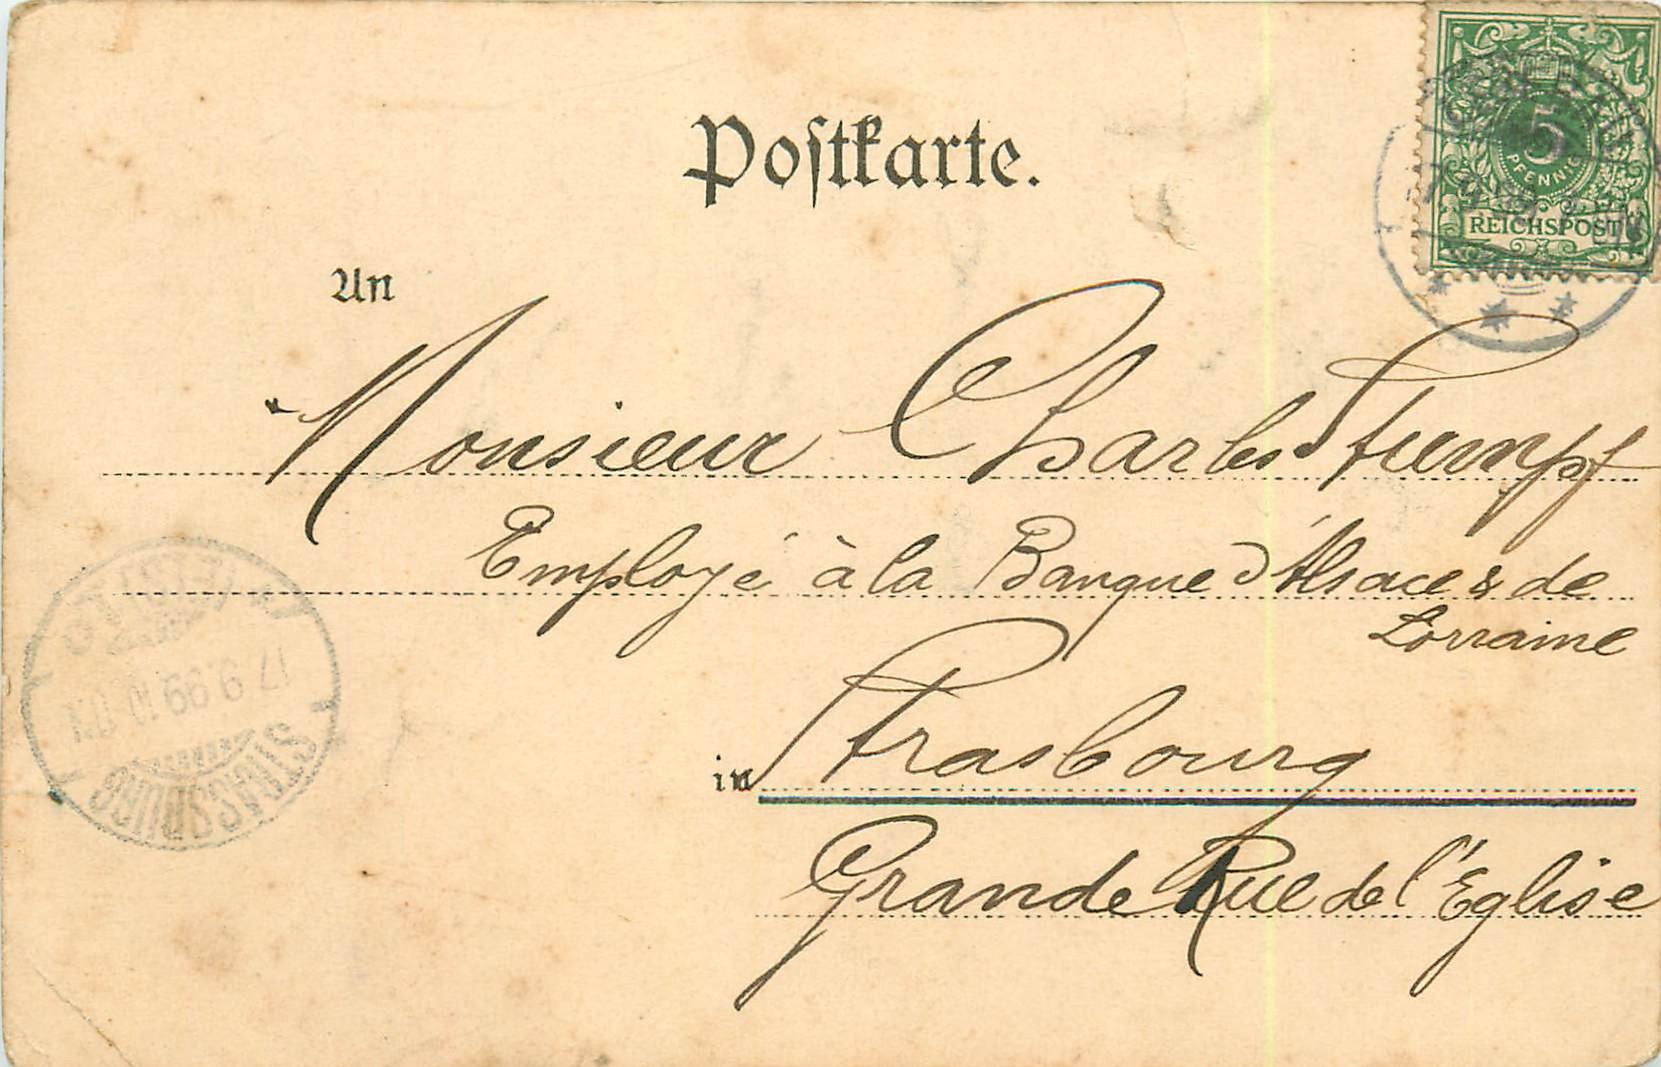 Postkarte.
5
PFENNIG
REICHSPOST
An
Monsieur Charles Stumpf
Employé à la Banque d'Alsace & de
Lorraine
in Strasbourg
Grande Rue de l'Eglise
17.9.99.10
STRASSBURG